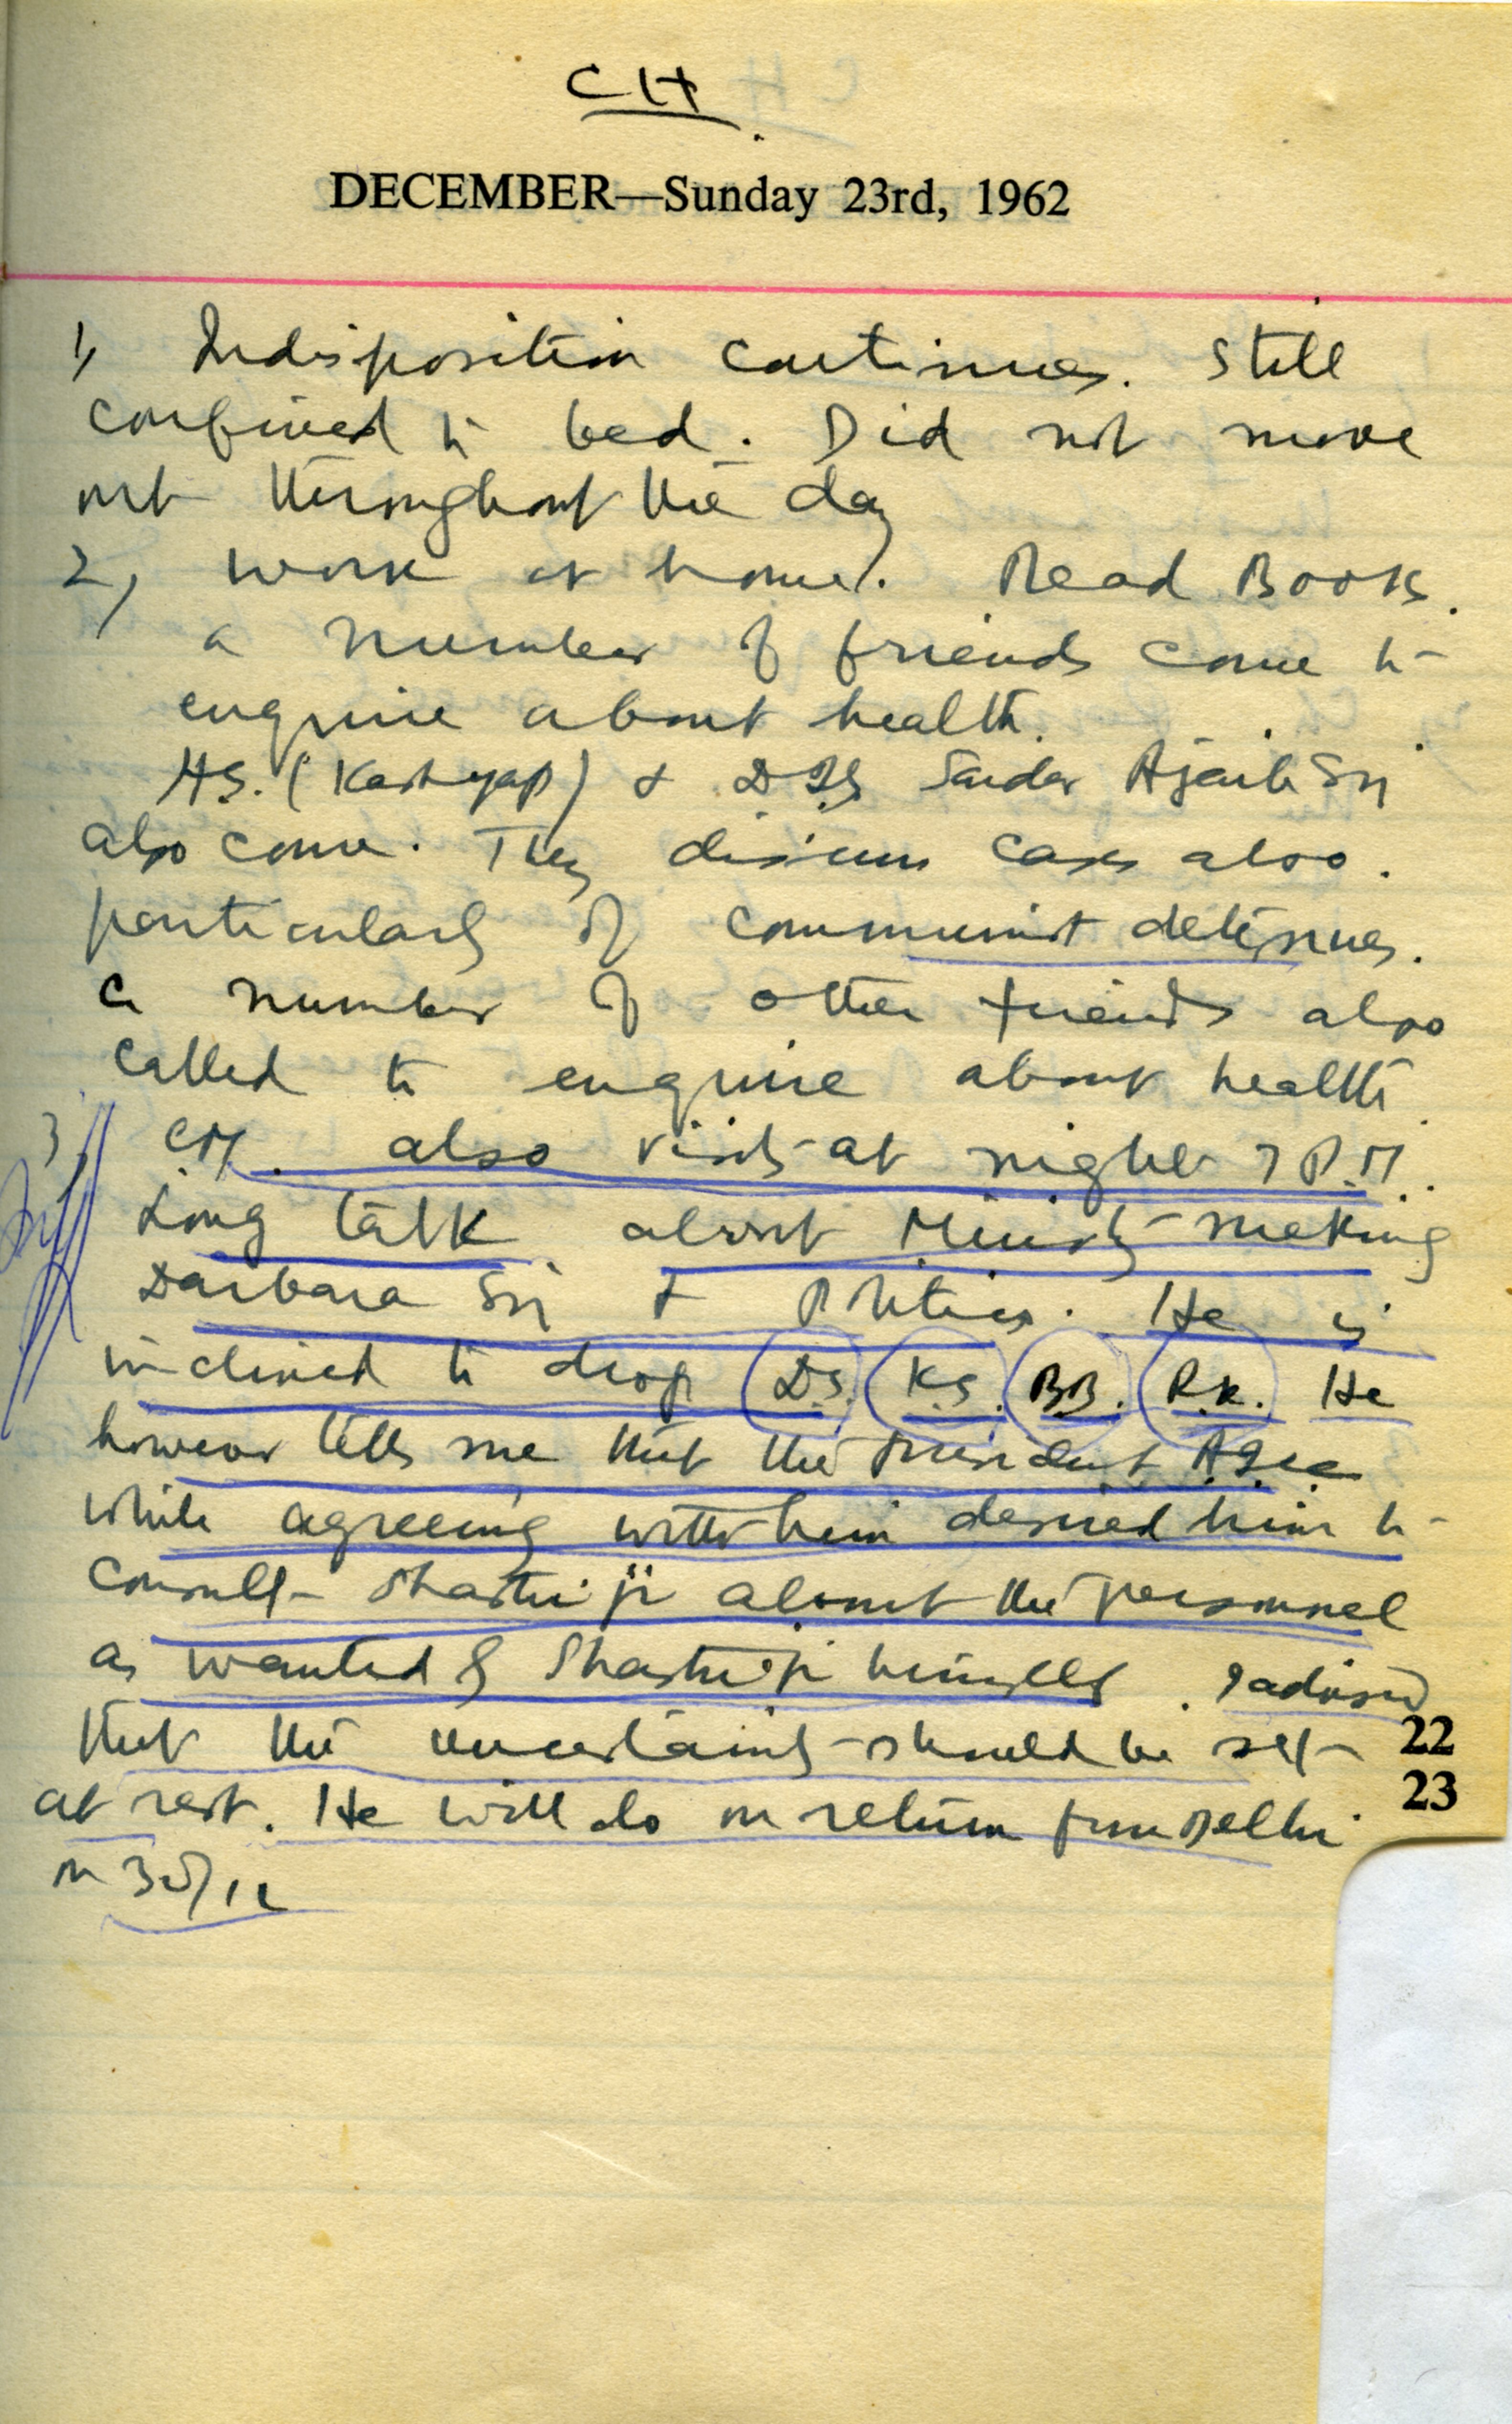 CH
DECEMBER—Sunday 23rd, 1962
1, Indisposition continues. Still
confined to bed. Did not move
out throughout the day
2, Work at home. Read Books.
a number of friends come to
enquire about health.
HS. (Kashyap) & DIG Sardar Ajaib Sn
also come. They discuss cases also.
particularly of communist detenues.
a number of other friends also
called to enquire about health.
3, CM. also visits at night 7 P.M.
Long talk about Ministry-making
Darbara Sn & Politics. He is
inclined to drop D.S. K.S. BB. R.K. He
however tells me that the President
while agreeing with him desired him to
consult Shastriji about the personnel
as wanted by Shastriji himself. I advised
that the uncertainty should be set
at rest. He will do on return from Delhi
on
22
23